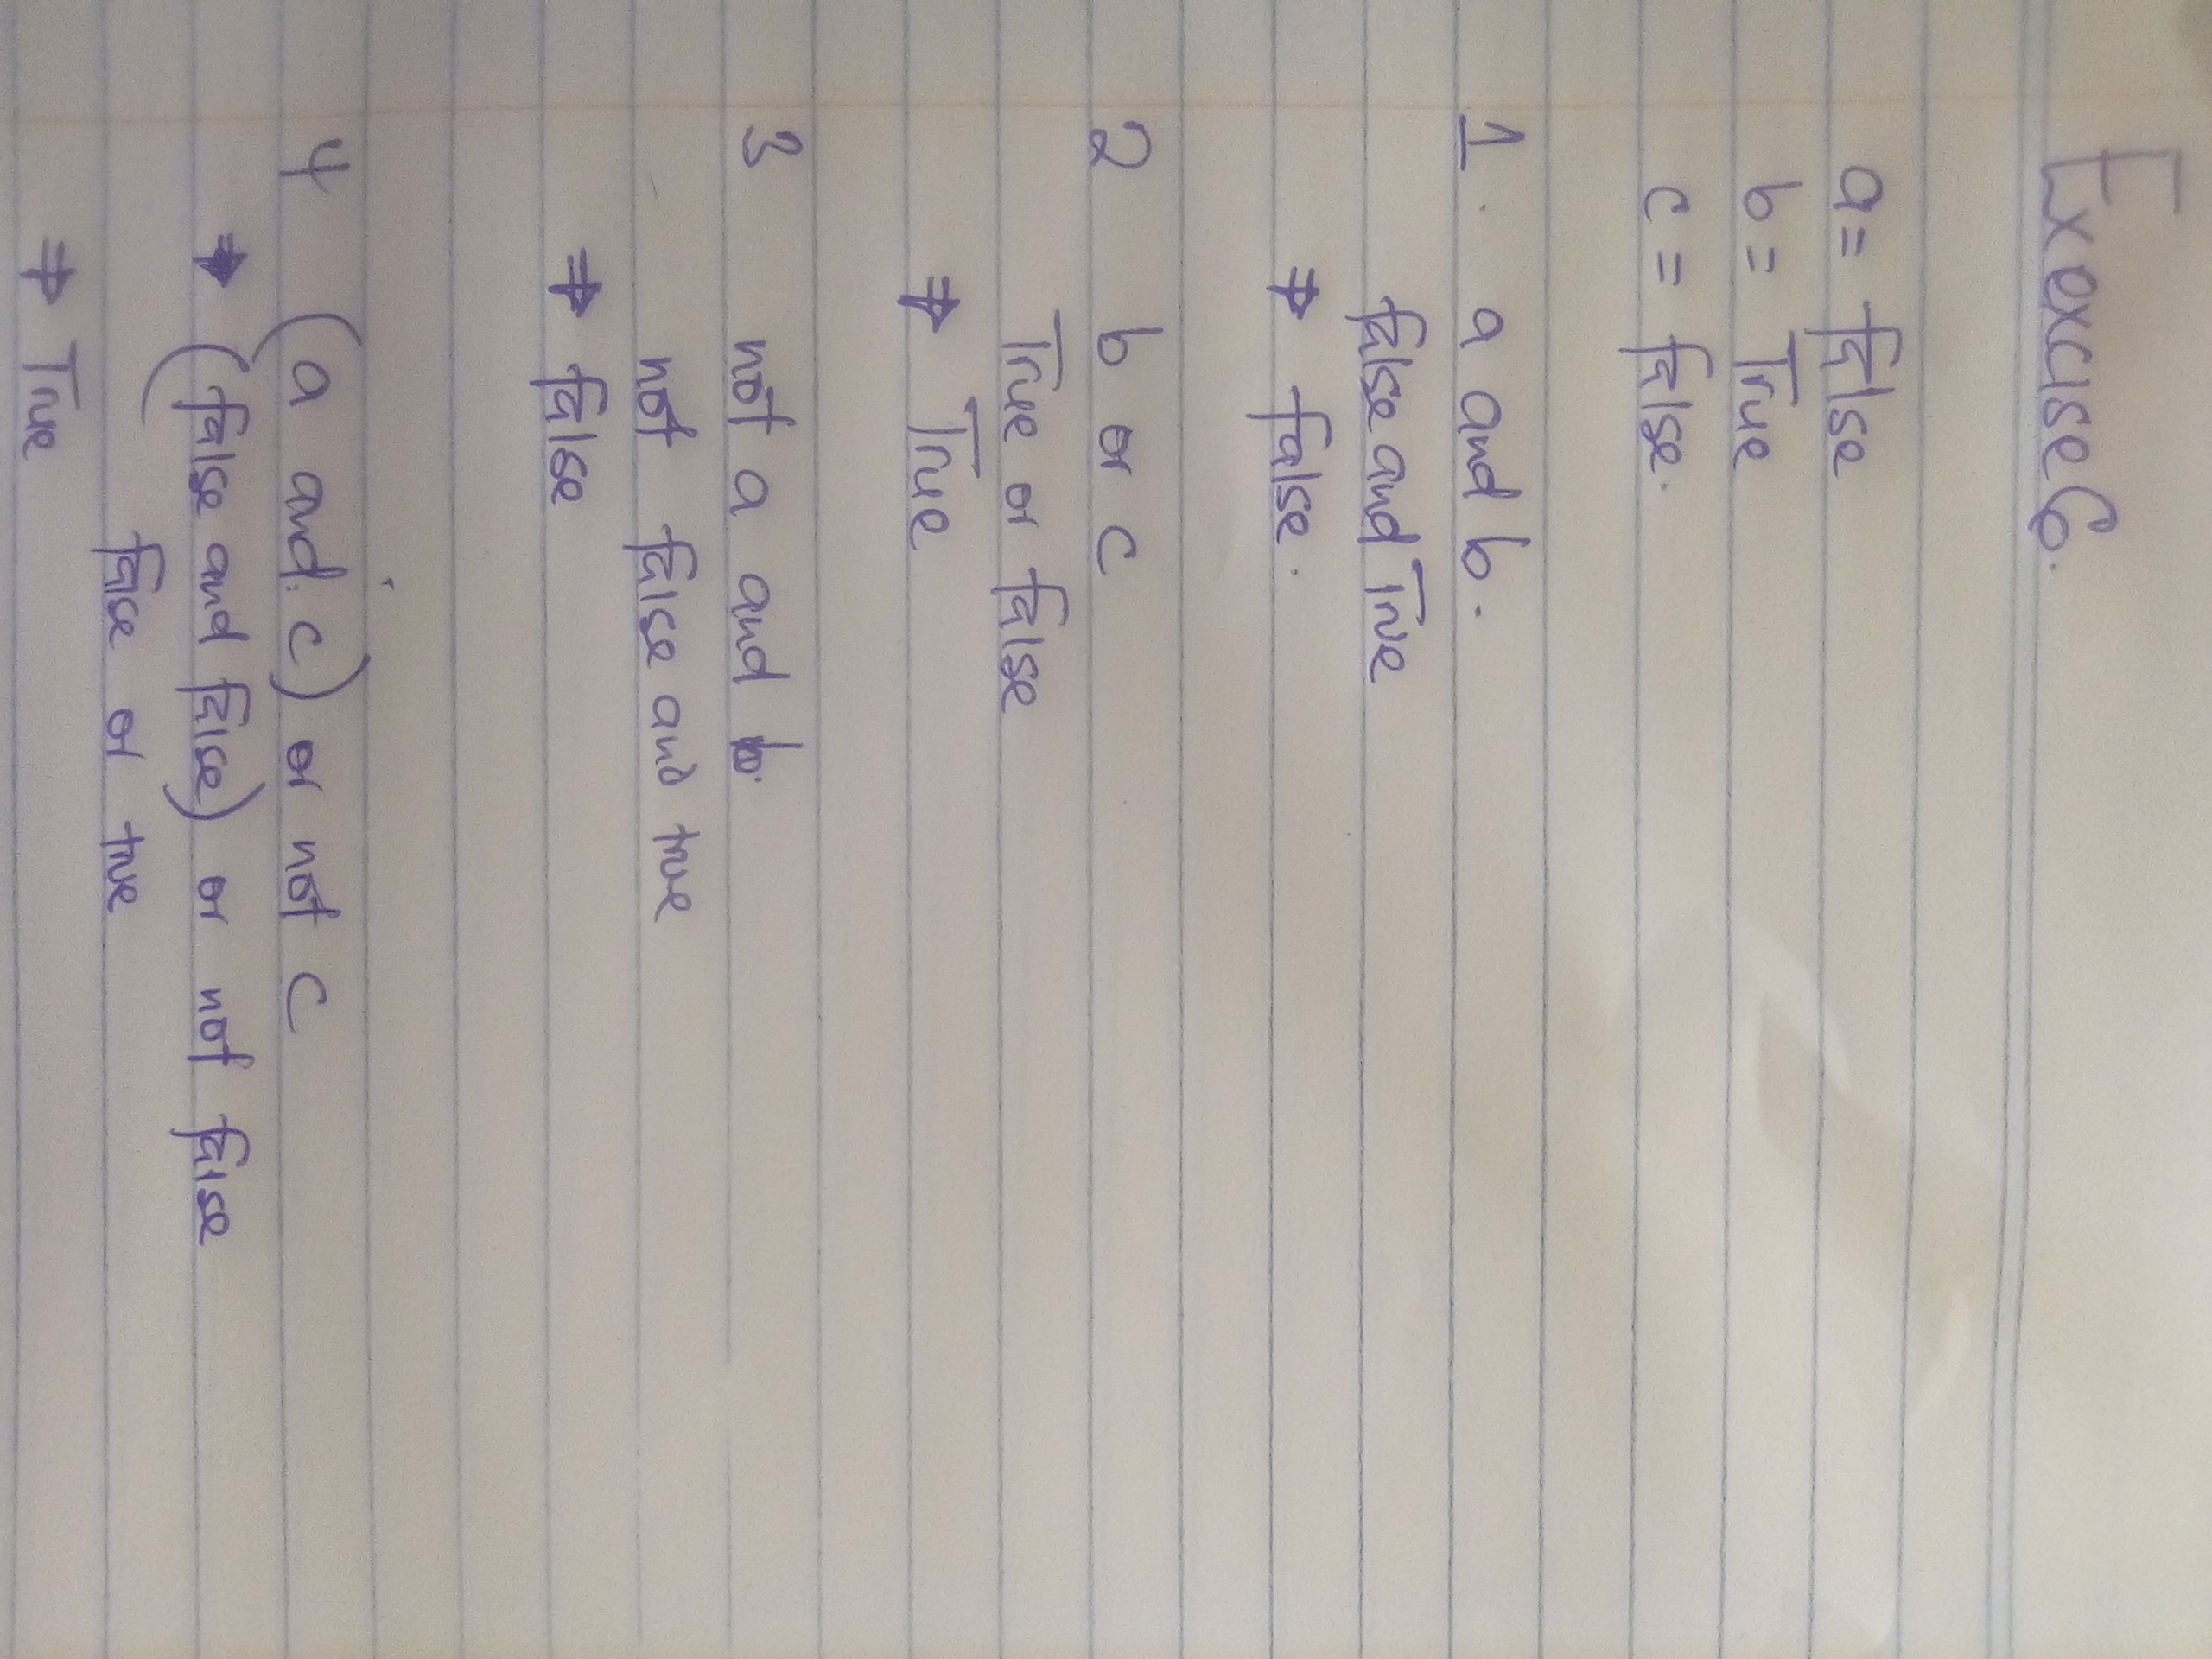 Exexcise 6.
a = false
b = True
c = false.
1. a and b.
false and True
⇒ false.
2 b or c
True or false
⇒ True
3 not a and b.
not false and true
⇒ false
4 (a and c) or not c
⇒ (false and false) or not false
false or true
⇒ True